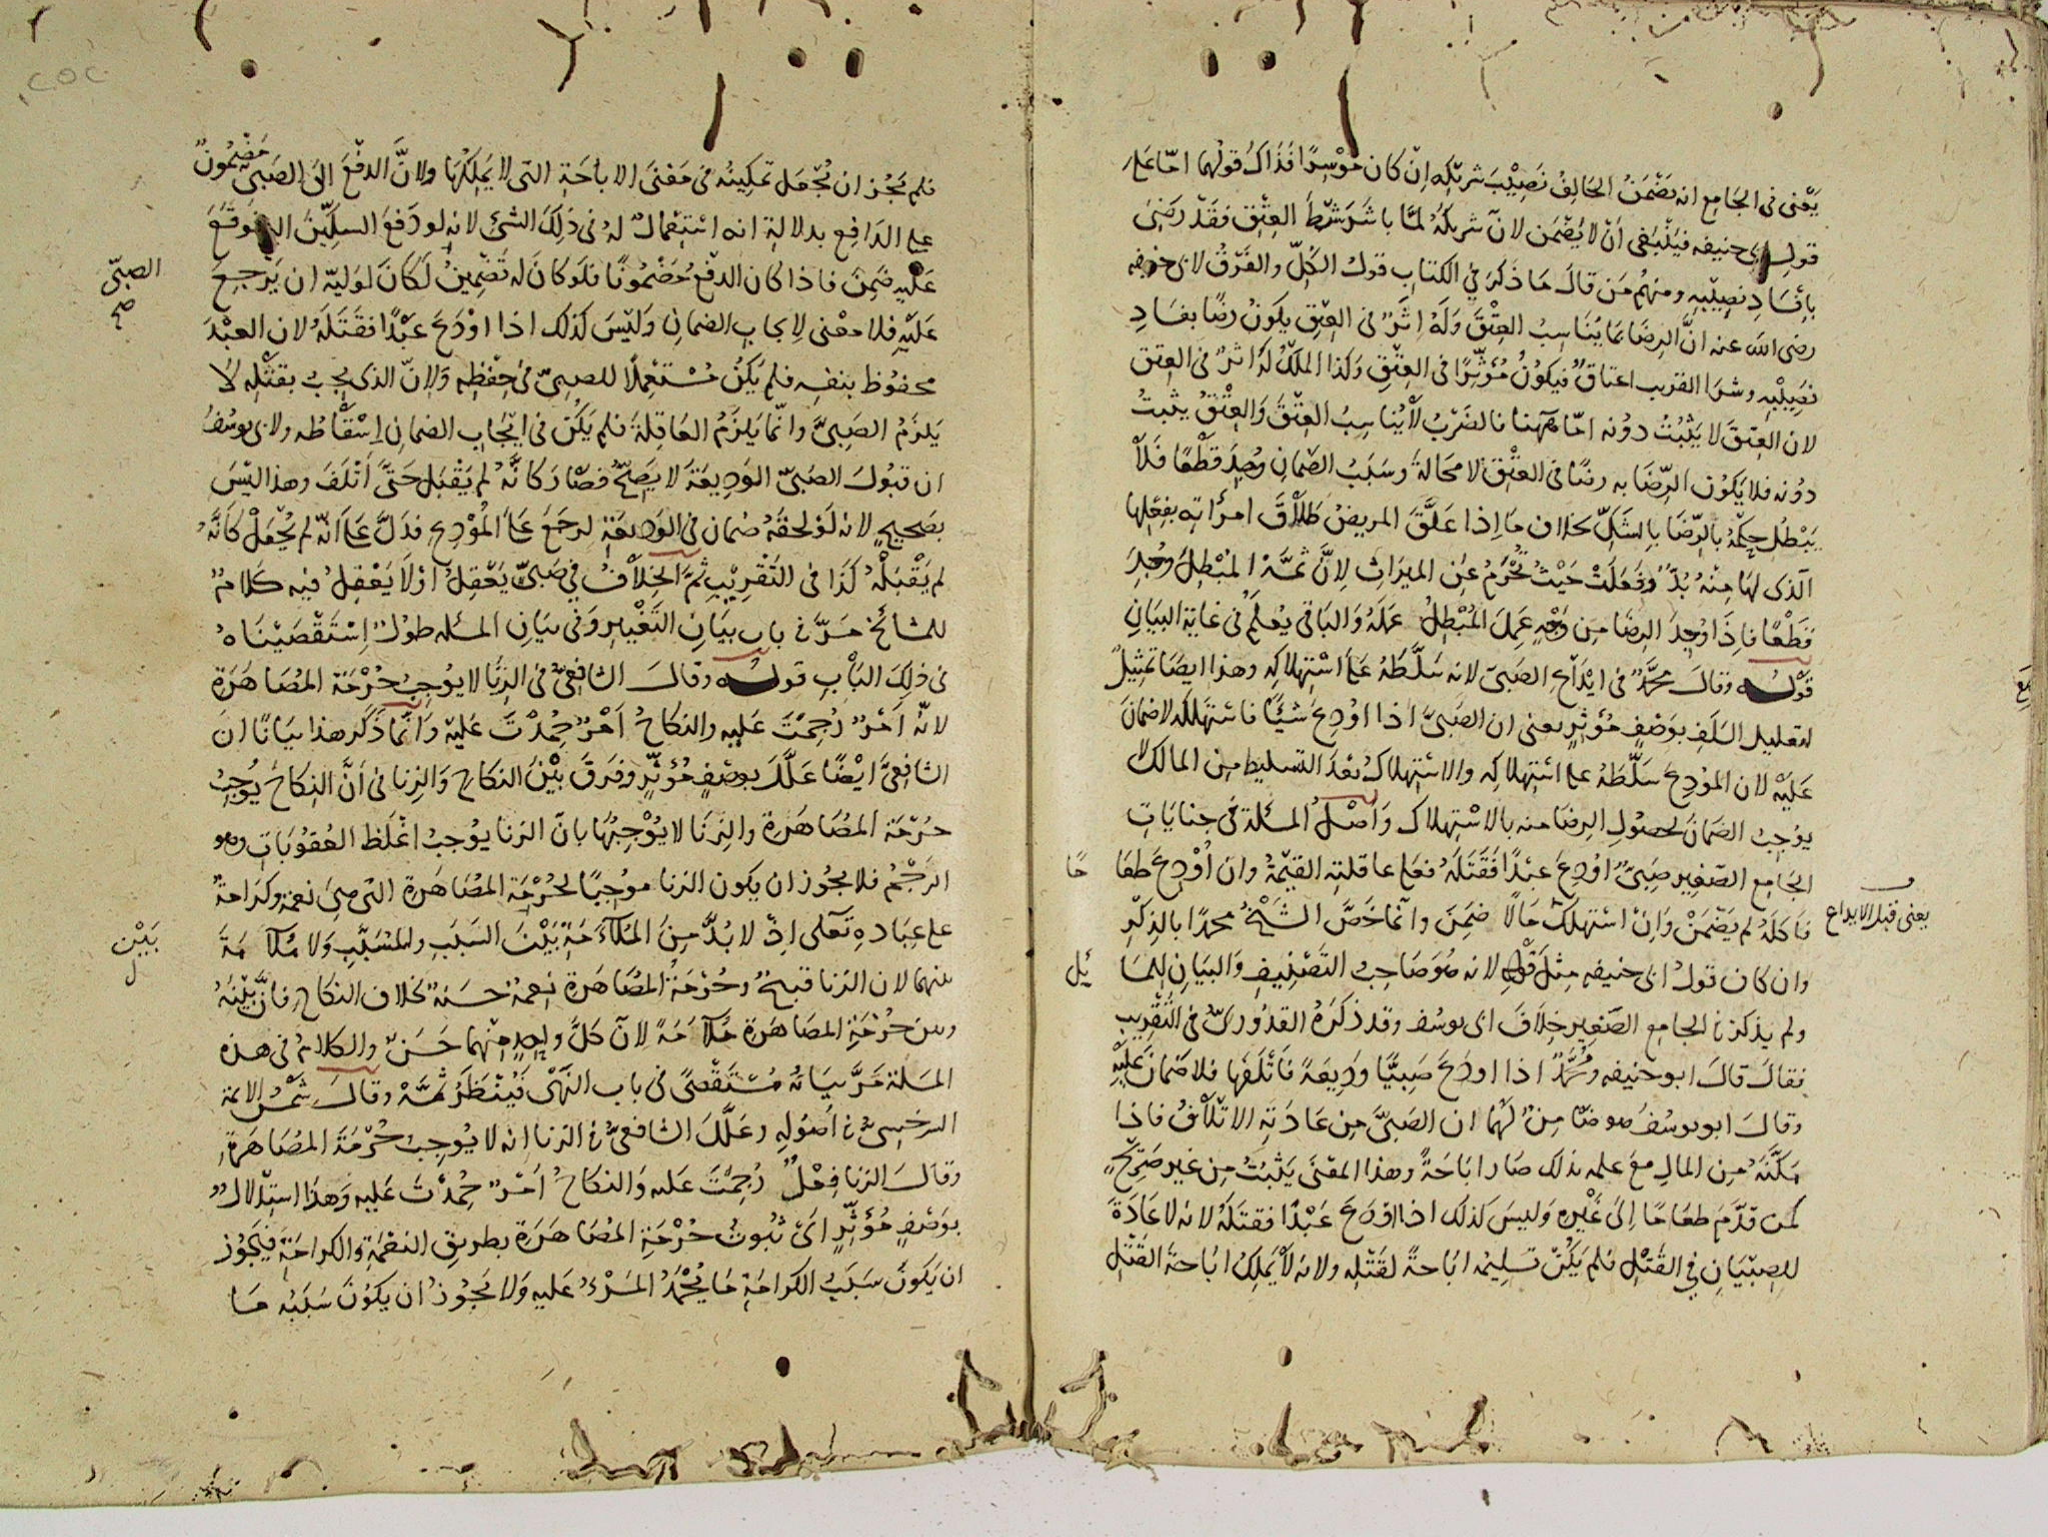 يَعْنى فى الجامع انه يضْمَنُ الحَالِفُ نَصِيْبَ شريكه اِنْ كان مُوْسِرًا فذاكَ قولُهما امّا عَلى
قول ابى حنيفه فَيَنْبَغى اَنْ لا يُضْمَن لانّ شريكهُ لمّا باشَرَ شَرْطَ العِتْقِ فقَدْ رضىَ
باِفْسَادِ نصِيْبِهِ ومنهُم مَن قالَ ما ذكرَ فى الكتابِ قولُ الكُلِّ والفَرْقُ لابى حنيفه
رضى الله عنه انَّ الرِضَا بما يُنَاسِبُ العِتْقَ وَلَهُ اَثَرٌ فى العِتْقِ يكونُ رضًا بفسَادِ
نصِيْبِهِ وشرَا القريب اعتاقٌ فيكوُنُ مُؤَثِّرًا فى العِتْقِ وكذا الملكُ لهُ اثرٌ فى العِتق
لان العِتقَ لا يَثْبُتُ دوُنه امّا هَهُنا فالضَرْبُ لا يُناسِبُ العِتْقَ وَالعِتْقُ يثبتُ
دوُنه فلا يَكوُن الرِّضَا به رضًا فى العِتْقِ لا محَالةَ وسَبَبُ الضّمانِ وُجِدَ قَطْعًا فَلَا
يَبْطُل حكمُهُ بالرِّضَا بالشَكِّ بخلاف ما اِذا عَلَّقَ المريضُ طَلَاقَ امرأته بفِعْلِها
الّذى لهَا مِنْهُ بُدٌّ وفَعَلَتْ حَيْثُ تُحْرَمُ عن الميرَاثِ لاِنَّ ثمَّهْ المُبْطِلَ وُجِدَ
قطْعًا فاِذَا وُجِدَ الرِضَا مِن وَجْهٍ عَمِلَ المُبْطِلُ عَمَلَهُ وَالبَاقى يُعْلَمُ فى غاية البيَانِ
قَوْلُـــه وقالَ محمَّدٌ فى ايْدَاعِ الصَبىّ لانه سَلَّطَهُ عَلَى اسْتِهلاكِه وهذا ايضًا تمثِيلٌ
لتعليل السَلَفِ بوَصْفٍ مُؤَثِّرٍ يعنى ان الصَبىَّ اذا اوُدِعَ شَيْئًا فاستهلكه لا ضمَانَ
عَلَيْه لان المُوْدِعَ سَلَّطَهُ على استِهلاكِه والاستِهلاكُ بَعدَ التسليط من المالك لا
يوُجِبُ الضمَانَ لحصُولِ الرِضَا منه بالاسْتِهلاك وَاَصْلُ المسئلة فى جنايَاتِ
الجامع الصّغير صَبىٌّ اوُدِعَ عبْدًا فقتَلَهُ فعلى عاقلته القيْمةُ وان اُوْدِعَ طعَا مًا
يعنى قبل الايداع
فاكلَهُ لم يَضْمَنْ وَاِنْ استهلكَ مَالًا ضمِنَ وانّما خَصَّ الشَيْخُ محمدًا بالذِكْرِ
وان كان قولُ ابى حنيفه مِثلَ قولِه لانه هُوَ صَاحِبُ التَصْنِيفِ وَالبيَانِ للمسَا ئِل
ولم يذكر فى الجامع الصَغير خِلَافَ ابى يوسُف وقد ذكرَهُ القدُورىّ فى التَّقْرِيبِ
فقالَ قالَ ابو حنيفه ومُحمَّدٌ اذا اودَعَ صَبِيًّا وَدِيعَةً فَاَتْلَفَهَا فلا ضَمَانَ عَلَيْهِ
وقالَ ابو يوسُفُ هو ضَامِنٌ لَهُما ان الصَبىَّ مِن عَادَتِهِ الاتلَافُ فاذا
مكَّنَهُ مِن المالِ معَ علمه بذلك صَار ابَاحَةً وهذا المعْنَى يَثبُتُ مِن غير صَرِيْحٍ
كمن قدَّمَ طعَامًا اِلى غيْرِه وَليسَ كذلك اذا اودَعَ عَبْدًا فقتَلَهُ لانه لا عَادَةَ
للصِبْيَانِ فى القَتْلِ فلم يَكُنْ تسلِيمُه ابَاحةً لقَتْلِه ولانه لا يَملِكُ ابَاحةَ القَتْلِ
فلم يَجُز ان يُجْعَل تمكِينُه فى مَعْنَى الاباحَةِ التى لا يَملِكُهَا ولانَّ الدفْعَ الى الصَبىّ مَضْمُونٌ
على الدَافِع بدلالةِ انه اسْتِعْمالٌ لهُ فى ذلِكَ الشئ لانه لو دَفعَ السكِّينَ اليه فوَقَعَ
عَلَيْهِ ضَمِنَ فاذا كان الدفْعُ مَضْمُونًا فلَو كانَ له تَضْمِينُ لَكَانَ لوَليّه ان يَرْجعَ
الصبىّ صح
عَلَيْهِ فلا معْنى لايجابِ الضمانِ وَليْسَ كذلك اذا اوْدَعَ عَبْدًا فقتَلَهُ لان العبْدَ
محفوُظ بنفسِه فلم يَكُنْ مُسْتَعْمِلًا للصبىّ فى حِفْظِه وَلانّ الذى يجبُ بقتْلِه لا
يَلزَمُ الصَبىَّ وانّما يَلزَمُ العَاقِلةَ فلم يَكُنْ فى ايْجَابِ الضمانِ اِسْقَاطُه ولابى يوسُفُ
ان قبوُلَ الصَبىّ الوَدِيعَةَ لا يَصِحُّ فصَارَ كانَّهُ لم يَقْبَل حَتَّى اَتْلَفَ وهذا ليْسَ
بصَحِيحٍ لانه لَوْ لحقَهُ ضمان فى الوَديعَةِ لرجَعَ عَلَى المُوْدِعِ فدَلَّ عَلَى اَنّه لم يُجْعَلْ كَاَنَّهُ
لم يَقْبَلْهُ كذَا فى التَقْرِيْبِ ثمَّ الخِلَافُ فى صَبىّ يَعْقِلُ اوْ لَا يَعْقِلُ فيه كَلامٌ
للمشائخ مَرَّ فى باب بيَانِ التَغْييرِ وَفى بيَانِ المسئله طوُلٌ اِسْتَقْصَيْنَاهُ
فى ذلِكَ البَابِ قولُـــه وقالَ الشافِعىُّ فى الزِنَا لا يوُجِبُ حُرْمَةَ المُصَاهَرَةِ
لانّه اَمْرٌ رُجِمْتَ عَليهِ والنكاحُ اَمْرٌ حُمِدْتَ عَليْه وَانّما ذَكَر هذا بيَانًا انَ
الشافِعىَّ ايْضًا عَلَّلَ بوصْفٍ مُؤثّرٍ وفرَقَ بيْنَ النكاحِ وَالزِنا فى اَنَّ النِكاحَ يُوجِبُ
حُرْمَةَ المُصَاهَرَةِ والزِنَا لا يُوْجِبُهَا بانَّ الزنا يوُجبُ اغْلَظ العُقوُبَاتِ وهو
الرَّجْمُ فلا يجوُز ان يكون الزنا موُجِبًا لحُرْمَةِ المُصَاهَرَةِ التى هِىَ نعمةٌ وكرَامةٌ
على عِبَادِهِ تَعَالى اِذْ لا بُدَّ مِنَ المُلَاءَمَةِ بَيْنَ السَبَبِ والمُسَبَّبِ ولا مُلَاءَمَةَ
بَيْن
بينهما لان الزنا قبِيحٌ وحُرْمَةُ المُصَاهَرَةِ نِعمةٌ حسَنةٌ بخلاف النكاح فانَّ بَيْنَهُ
وبين حُرْمَةِ المصَاهَرَةِ مُلَاءَمَةً لانّ كلَّ واحِدٍ منْهما حَسَنٌ والكلامُ فى هذه
المسئلة مَرَّ بيَانُه مُسْتَقْصًى فى باب النَهْى فَيُنْظَرُ ثمَّهْ وقالَ شمْسُ الائمة
السَرَخسِىُّ فى اُصُولِه وعَلَّلَ الشافعىُّ فى الزنا انه لا يُوجِبُ حُرْمَةَ المُصَاهَرَةِ
وقالَ الزنا فِعْلٌ رُجِمْتَ عليه وَالنكاحُ اَمْرٌ حُمِدْتَ عَليه وَهذا استِدْلالٌ
بوَصْفٍ مُؤَثِّرٍ اىْ ثُبوُتُ حُرْمَةِ المُصَاهَرَةِ بطريقِ النعْمَةِ والكرامَةِ فيَجُوز
ان يَكونَ سَبَبُ الكرامَةِ مَا يُحْمَدُ المَرْءُ عَليهِ وَلا يَجُوزُ ان يكوُنَ سَبَبُه مَا